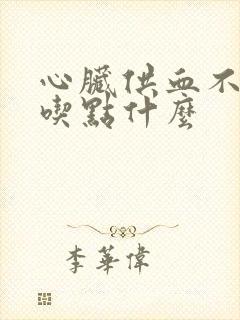 心臟供血不
喫點什麼
李華偉